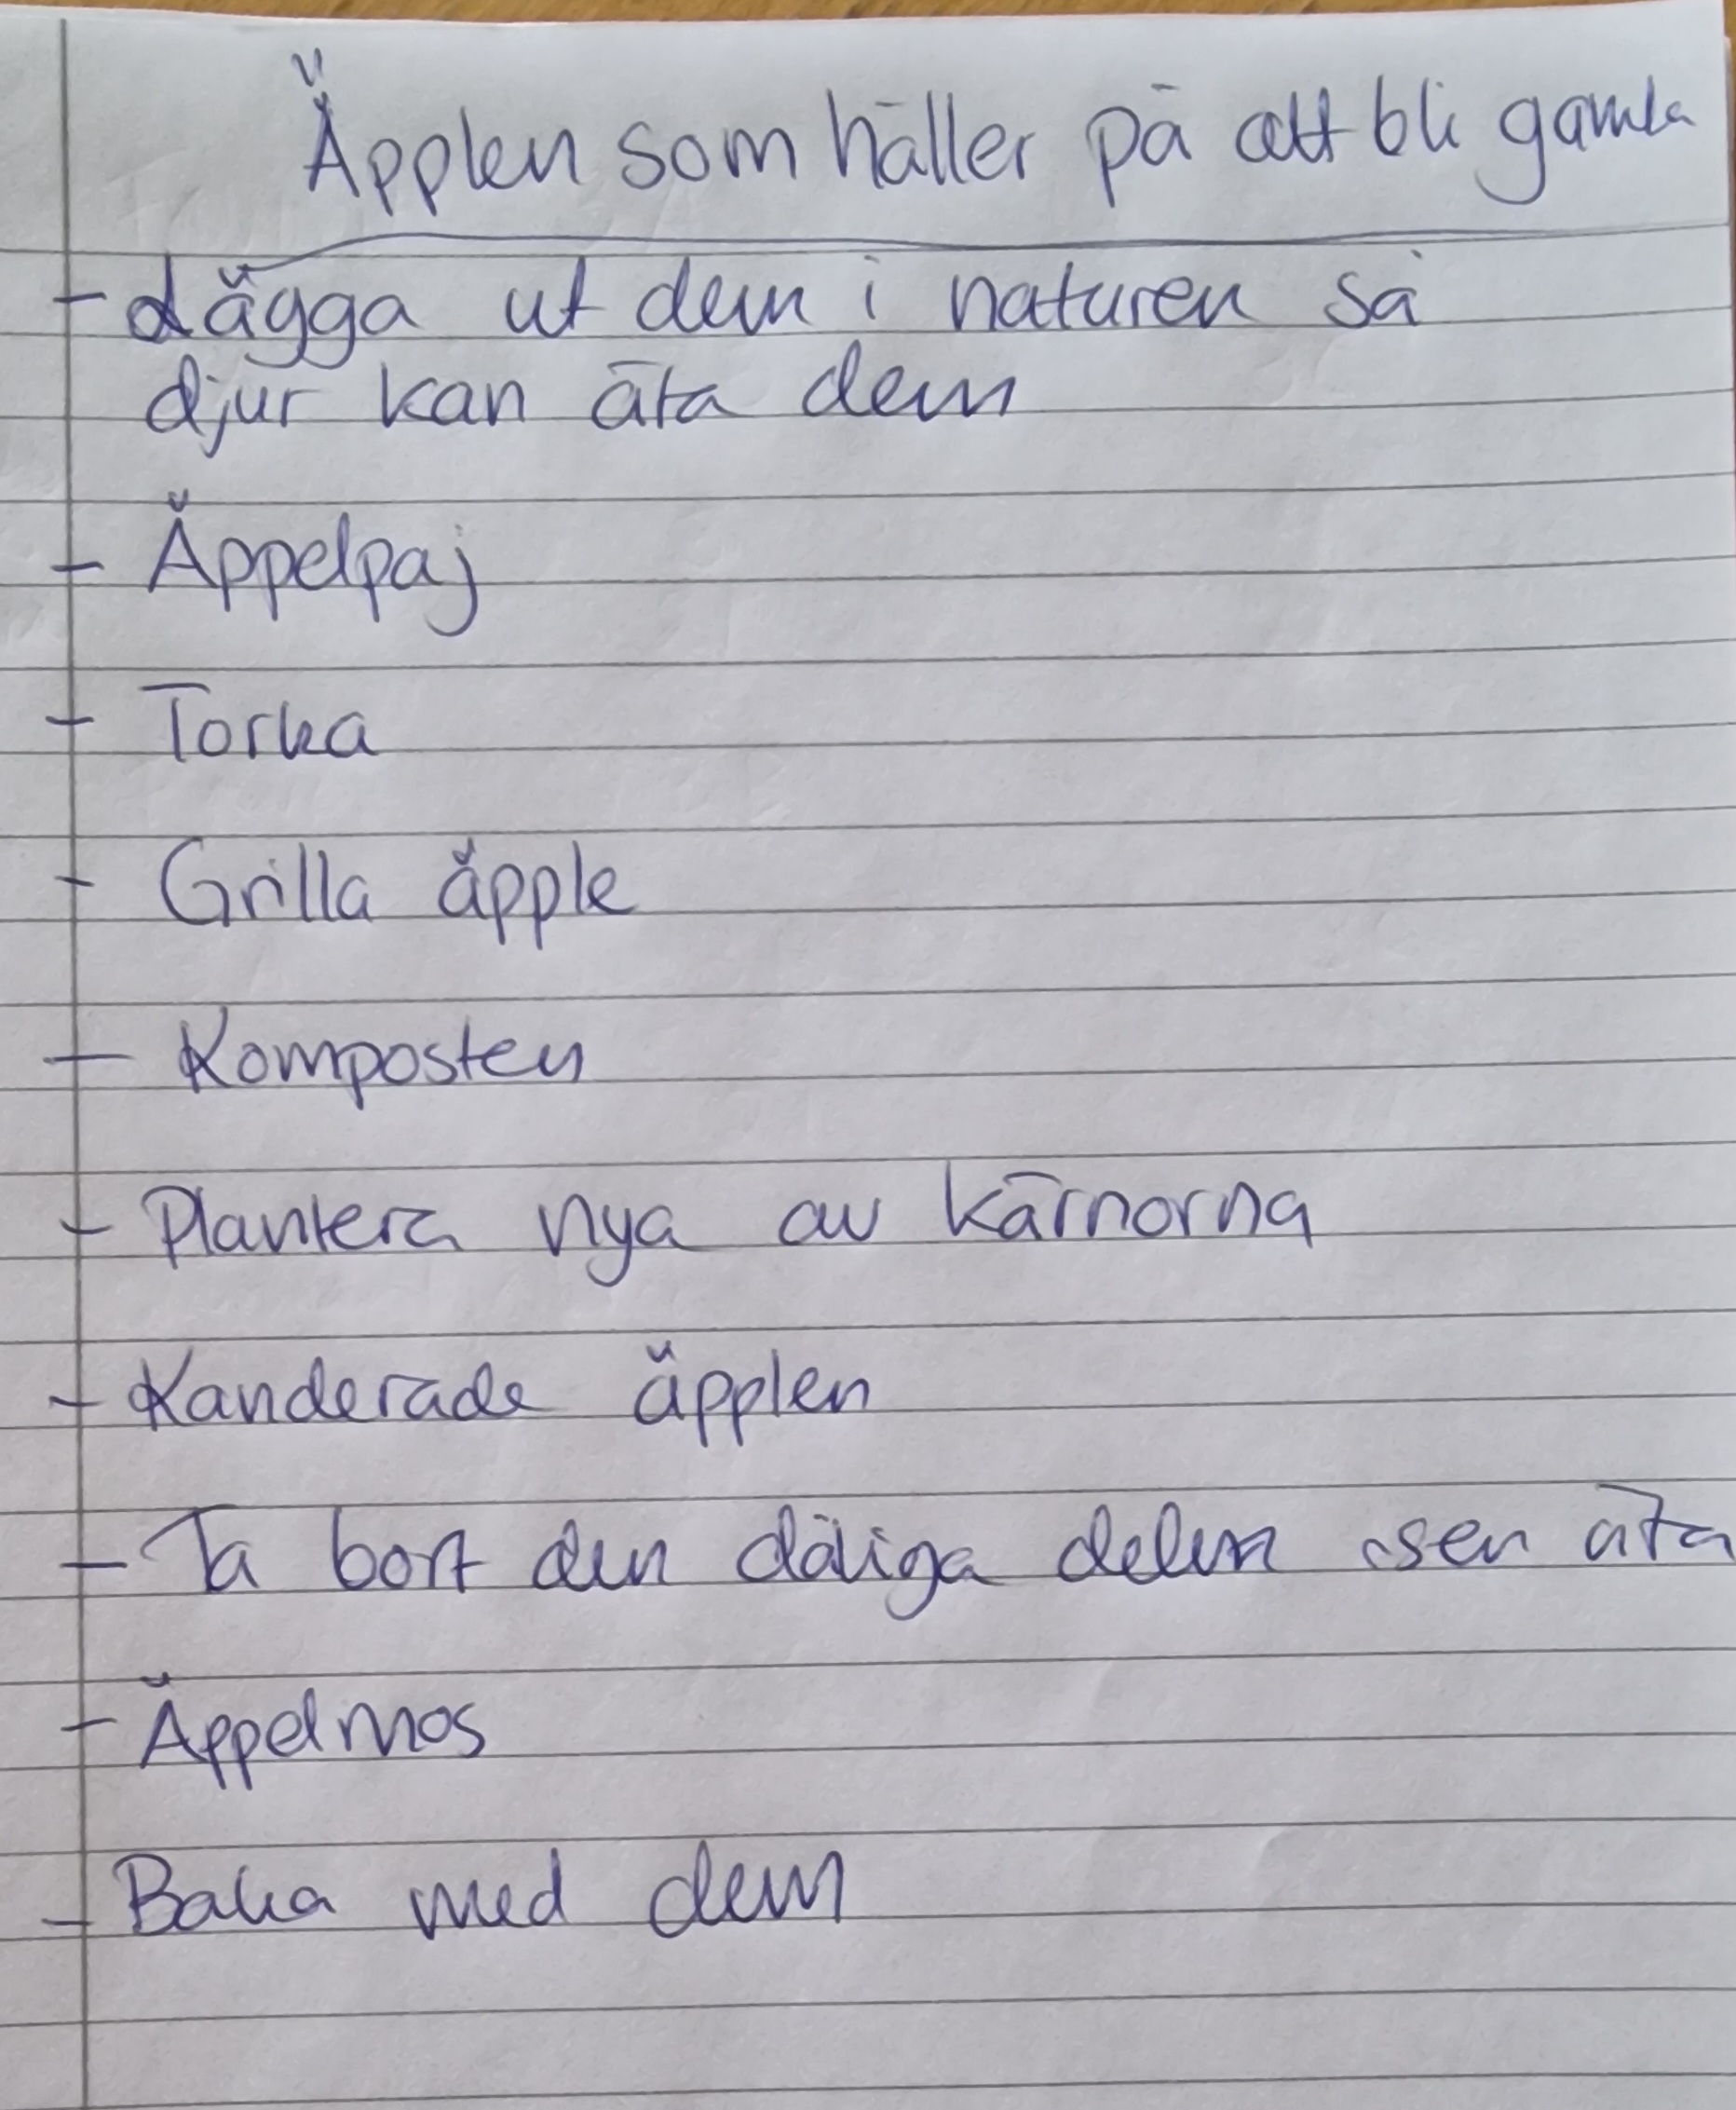 Äpplen som håller på att bli gamla
- Lägga ut dem i naturen så
djur kan äta dem
- Äppelpaj
- Torka
- Grilla äpple
- Komposten
- Plantera nya av kärnorna
- Kanderade äpplen
- Ta bort den dåliga delen sen äta
- Äppelmos
- Baka med dem